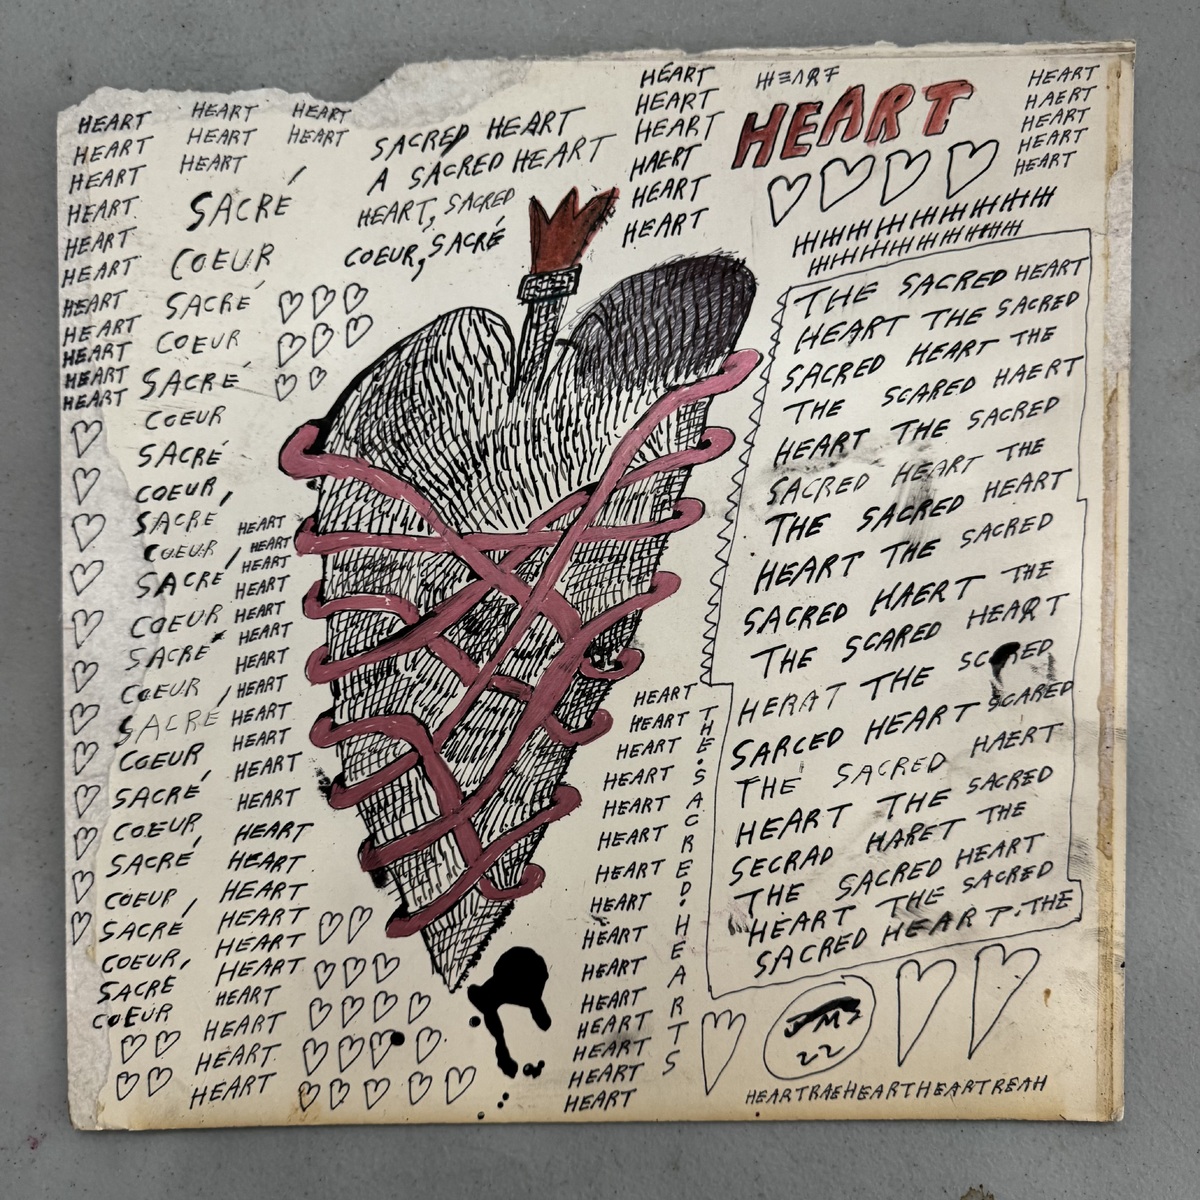 HEART
HEART
HEART
HEART
HEART
HEART
HEART
HEART
HEART
HEART
HEART
HEART
HEART
HEART
HEART
HEART
SACRÉ
COEUR
SACRÉ
COEUR
SACRÉ
COEUR
SACRÉ
COEUR,
SACRÉ
COEUR
SACRÉ
COEUR
SACRÉ
COEUR
SACRÉ
COEUR
SACRÉ,
COEUR,
SACRÉ
COEUR,
SACRÉ
COEUR,
SACRÉ
COEUR
HEART
HEART
HEART
HEART
HEART
HEART
HEART
HEART
HEART
HEART
HEART
HEART
HEART
HEART
HEART
HEART
HEART
HEART
HEART
HEART
HEART
SACRED HEART
A SACRED HEART
HEART, SACRED
COEUR, SACRÉ
HEART
HEART
HEART
HAERT
HEART
HEART
HEART
HEART
HEART
HAERT
HEART
HEART
HEART
THE SACRED HEART
HEART THE SACRED
SACRED HEART THE
THE SCARED HAERT
HEART THE SACRED
SACRED HEART THE
THE SACRED HEART
HEART THE SACRED
SACRED HAERT THE
THE SCARED HEART
HERAT THE
SARCED HEART SCARED
THE SACRED HAERT
HEART THE SACRED
SECRAD HARET THE
THE SACRED HEART
HEART THE SACRED
SACRED HEART. THE
HEART
HEART
HEART
HEART
HEART
HEART
HEART
HEART
HEART
HEART
HEART
HEART
HEART
HEART
HEART
THE.SACRED.HEARTS
22
HEARTRAEHEARTHEARTREAH